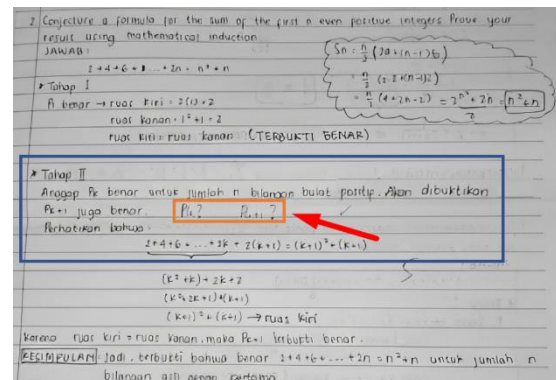 2. Conjecture a formula for the sum of the first n even positive integers Prove your
result using mathematical induction
JAWAB:
Sn = n/2 (2a + (n-1)b)
= n/2 (2.2 + (n-1)2)
= n/2 (4 + 2n - 2) = 2n² + 2n / 2 = n² + n
2 + 4 + 6 + ... + 2n = n² + n
* Tahap I
A benar → ruas kiri = 2(1) = 2
ruas kanan = 1² + 1 = 2
ruas kiri = ruas kanan (TERBUKTI BENAR)
* Tahap II
Anggap Pk benar untuk jumlah n bilangan bulat positip. Akan dibuktikan
Pk+1 juga benar. Pk? Pk+1?
Perhatikan bahwa:
2 + 4 + 6 + ... + 2k + 2(k+1) = (k+1)² + (k+1)
(k² + k) + 2k + 2
(k² + 2k + 1) + (k+1)
(k+1)² + (k+1) → ruas kiri
Karena ruas kiri = ruas kanan, maka Pk+1 terbukti benar.
KESIMPULAN: Jadi, terbukti bahwa benar 2+4+6+ ... +2n = n²+n untuk jumlah n
bilangan asli genap pertama